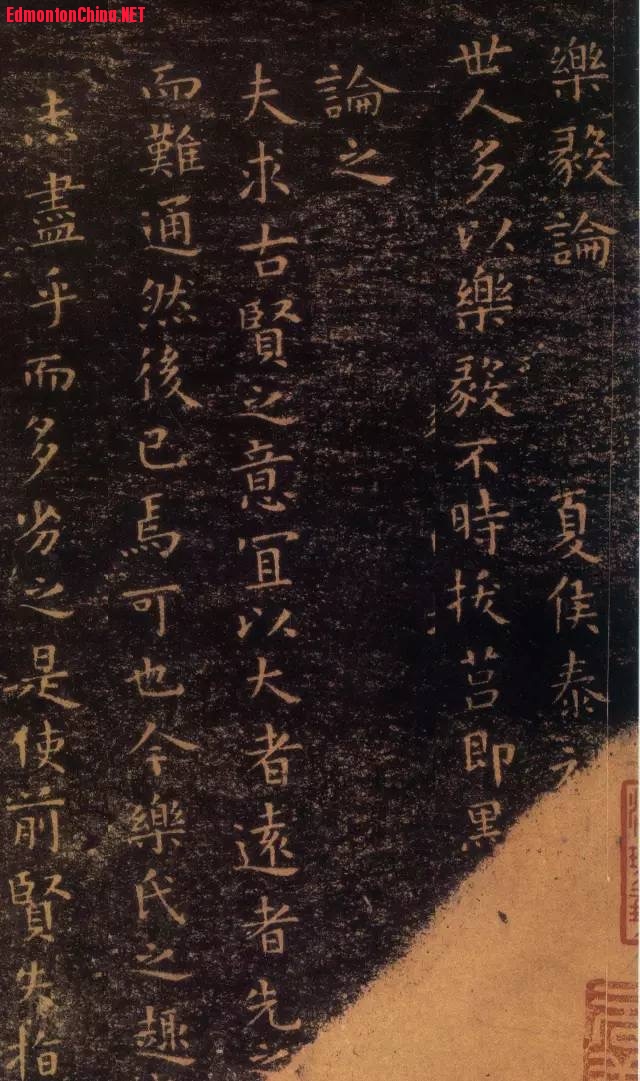 EdmontonChina.NET
樂毅論 夏侯泰
世人多以樂毅不時拔莒即墨
論之
夫求古賢之意宜以大者遠者先之
而難通然後已焉可也今樂氏之趣
未盡乎而多劣之是使前賢失指